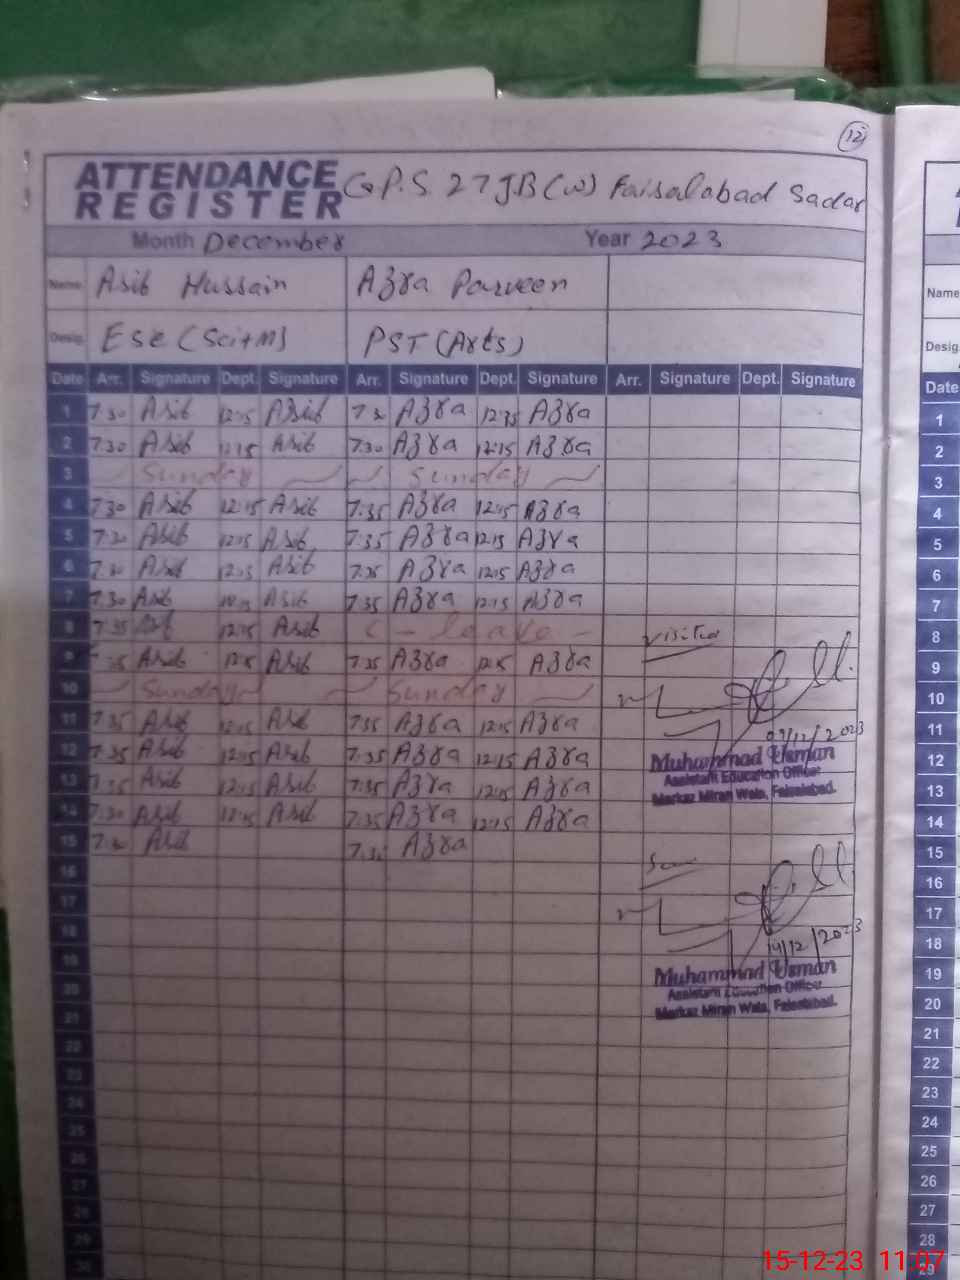 12
ATTENDANCE REGISTER G.P.S. 27 JB (W) Faisalabad Sadar
Month December Year 2023
Name Asif Hussain Azra Parveen
Desig. ESE (Sci+M) PST (Arts)
Date Arr. Signature Dept. Signature Arr. Signature Dept. Signature Arr. Signature Dept. Signature
1 7.30 Asif 12:15 Asif 7.30 Azra 12:15 Azra
2 7.30 Asif 12:15 Asif 7.30 Azra 12:15 Azra
3 Sunday Sunday
4 7.30 Asif 12:15 Asif 7:35 Azra 12:15 Azra
5 7:30 Asif 12:15 Asif 7:35 Azra 12:15 Azra
6 7.30 Asif 12:15 Asif 7.35 Azra 12:15 Azra
7 7.30 Asif 12:15 Asif 7.35 Azra 12:15 Azra
8 7:35 Asif 12:15 Asif C - leave - visited
9 Asif 12:15 Asif 7:35 Azra 12:15 Azra
10 Sunday Sunday
11 7:35 Asif 12:15 Asif 7:35 Azra 12:15 Azra
12 7:35 Asif 12:15 Asif 7:35 Azra 12:15 Azra
Muhammad Usman
Assistant Education Officer
Markaz Miran Wala, Faisalabad.
13 7:35 Asif 12:15 Asif 7:35 Azra 12:15 Azra
14 7:30 Asif 12:15 Asif 7:35 Azra 12:15 Azra
15 7:30 Asif 7:30 Azra
16
17
18 14/12/2023
19
Muhammad Usman
Assistant Education Officer
Markaz Miran Wala, Faisalabad.
20
21
22
23
24
25
26
27
28
29
30
Name
Desig.
Date
1
2
3
4
5
6
7
8
9
10
11
12
13
14
15
16
17
18
19
20
21
22
23
24
25
26
27
28
29
15-12-23 11:07